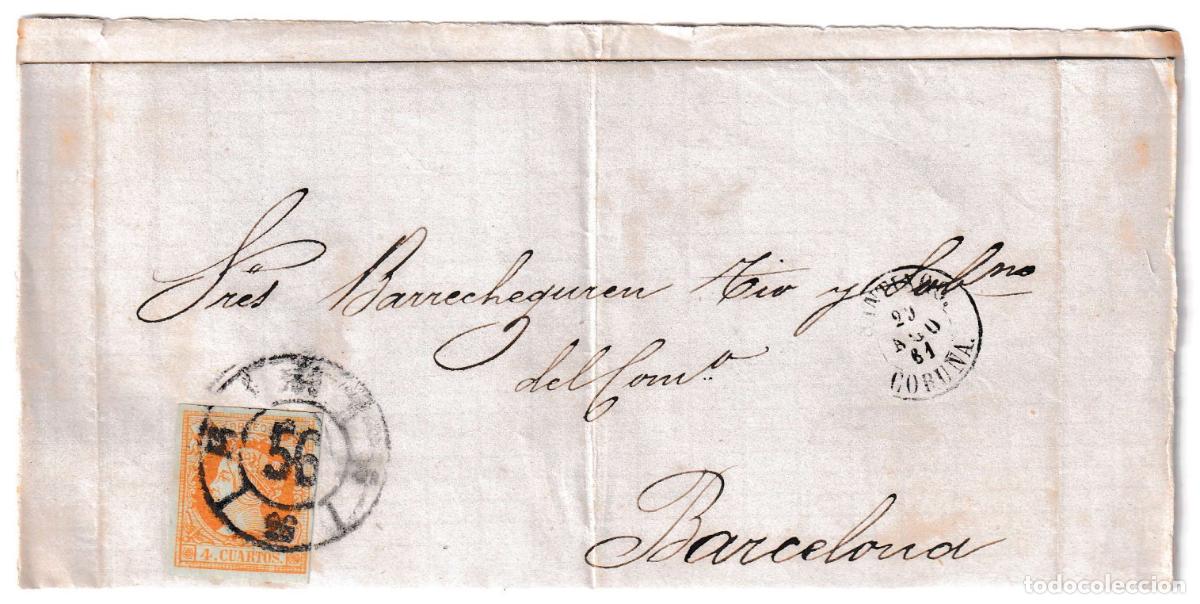 Sres Barrecheguren Tio y Sobno
del Como
Barcelona
SANTIAGO.
20
AGO
61
CORUÑA.
56
4. CUARTOS.
todocoleccion